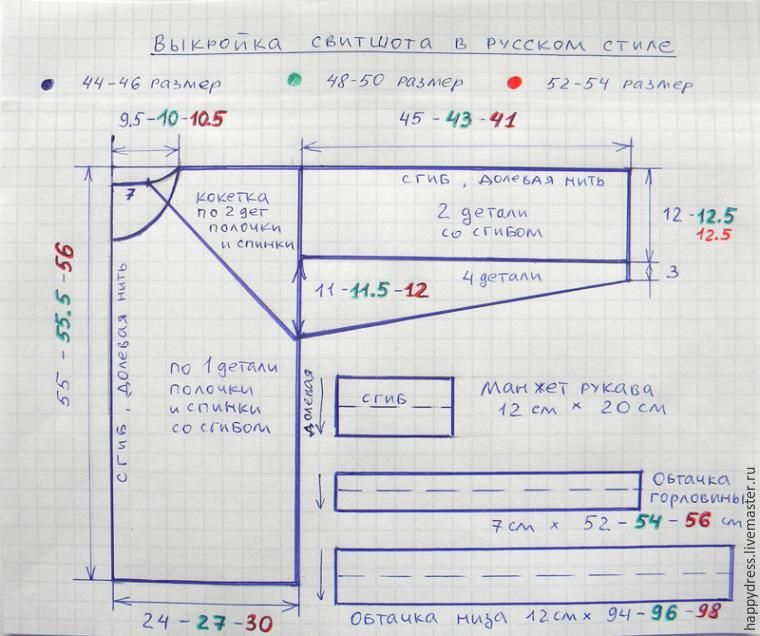 Выкройка свитшота в русском стиле
44-46 размер
48-50 размер
52-54 размер
9.5-10-10.5
45 - 43 - 41
сгиб, долевая нить
7
кокетка
по 2 дет
полочки
и спинки
2 детали
со сгибом
12 - 12.5
12.5
4 детали
3
11 - 11.5 - 12
55 - 55.5 - 56
сгиб, долевая нить
по 1 детали
полочки
и спинки
со сгибом
долевая
сгиб
Манжет рукава
12 см × 20 см
Обтачка
горловины
7 см × 52 - 54 - 56 см
24 - 27 - 30
Обтачка низа 12 см × 94 - 96 - 98
happydress.livemaster.ru